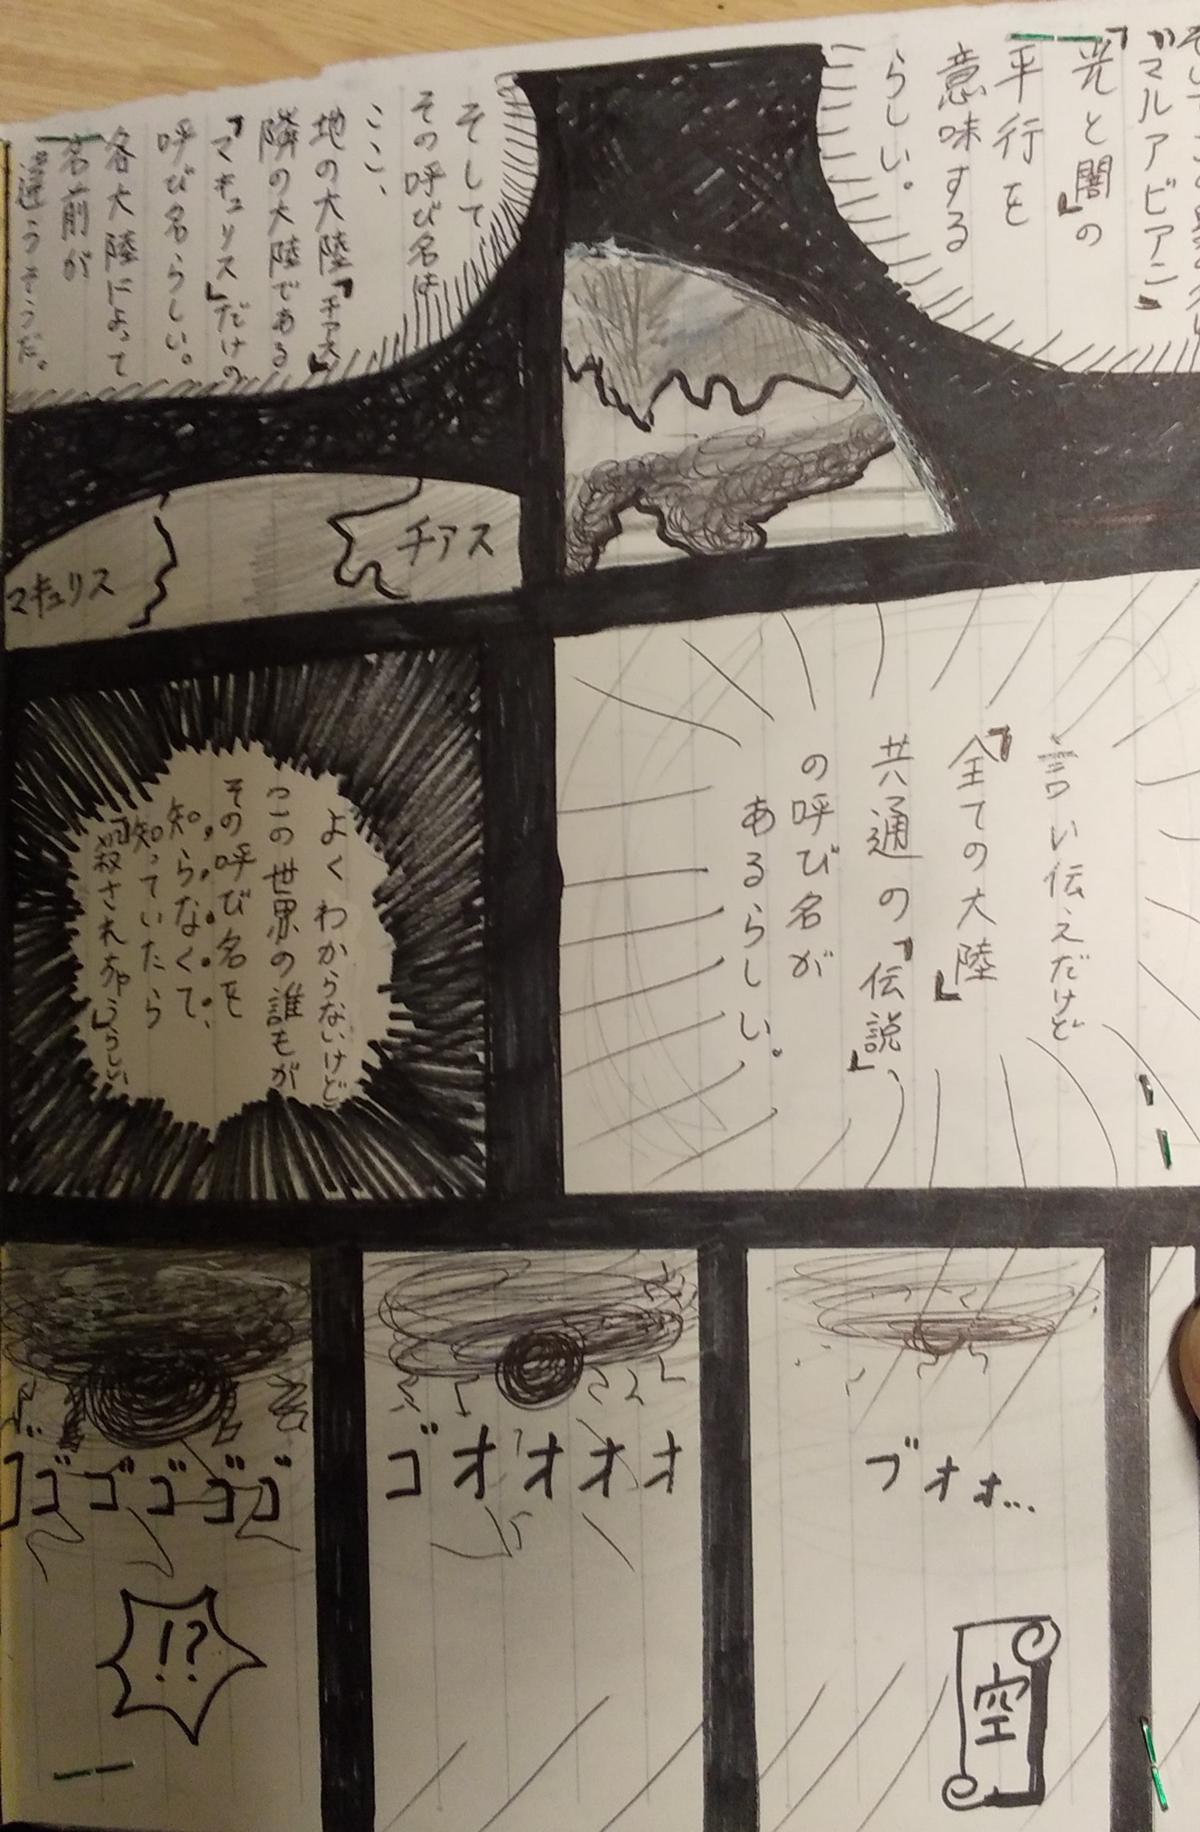 『マルアビアニ』
光と闇』の
平行を
意味する
らしい。
そして
その呼び名は
ここ、
地の大陸『チアス』
隣の大陸である
『マキュリス』だけの
呼び名らしい。
各大陸によって
名前が
違うそうだ。
チアス
マキュリス
言い伝えだけど
『全ての大陸』
共通の『伝説』
の呼び名が
あるらしい。
よくわからないけど
この世界の誰もが
その呼び名を
知らなくて、
知っていたら
『殺されちゃう』らしい
ブオォ…
空
ゴオオオオ
ゴゴゴゴゴ
!?